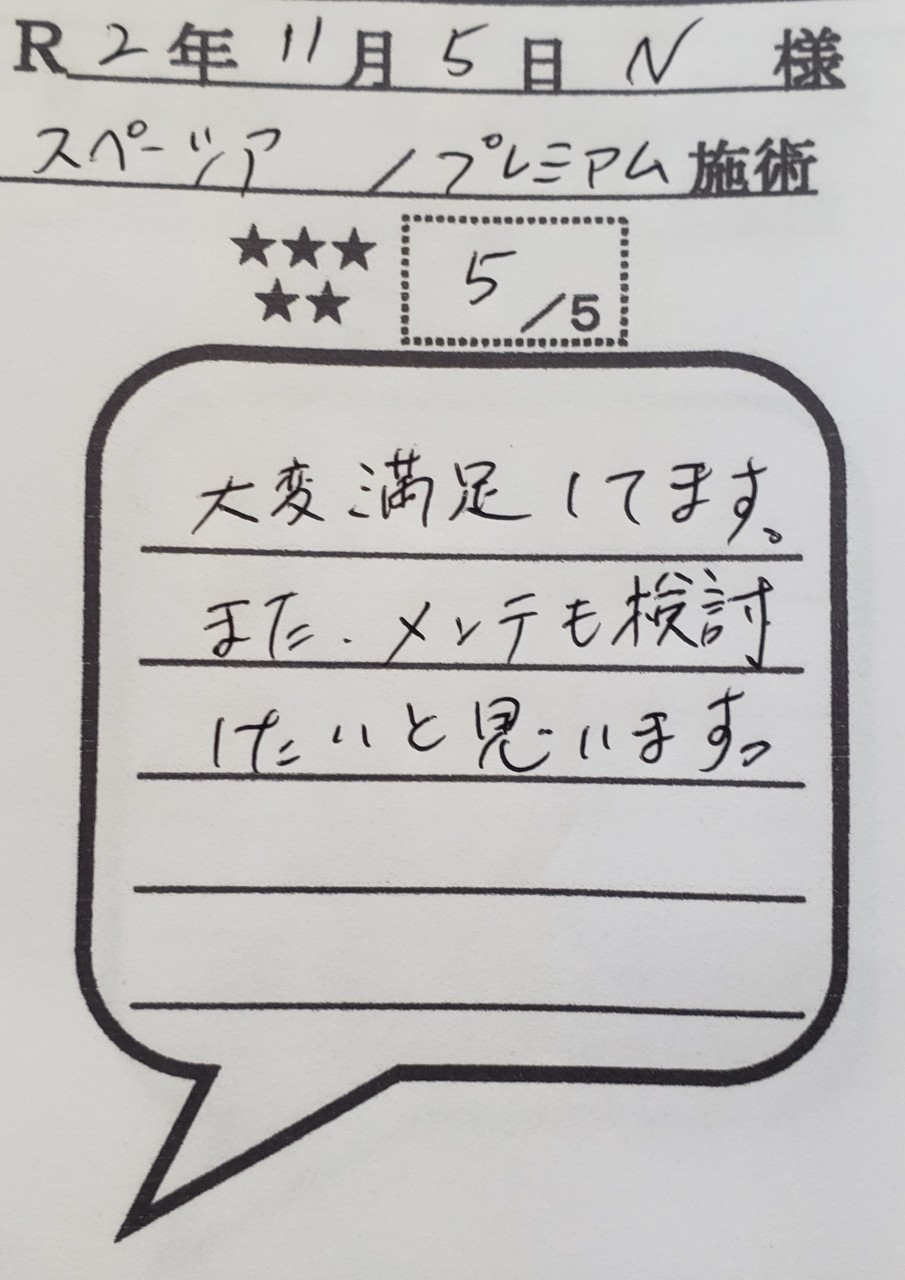 R2年11月5日 N 様
スペーシア /プレミアム施術
★★★
★★
5/5
大変満足してます。
また、メンテも検討
したいと思います。